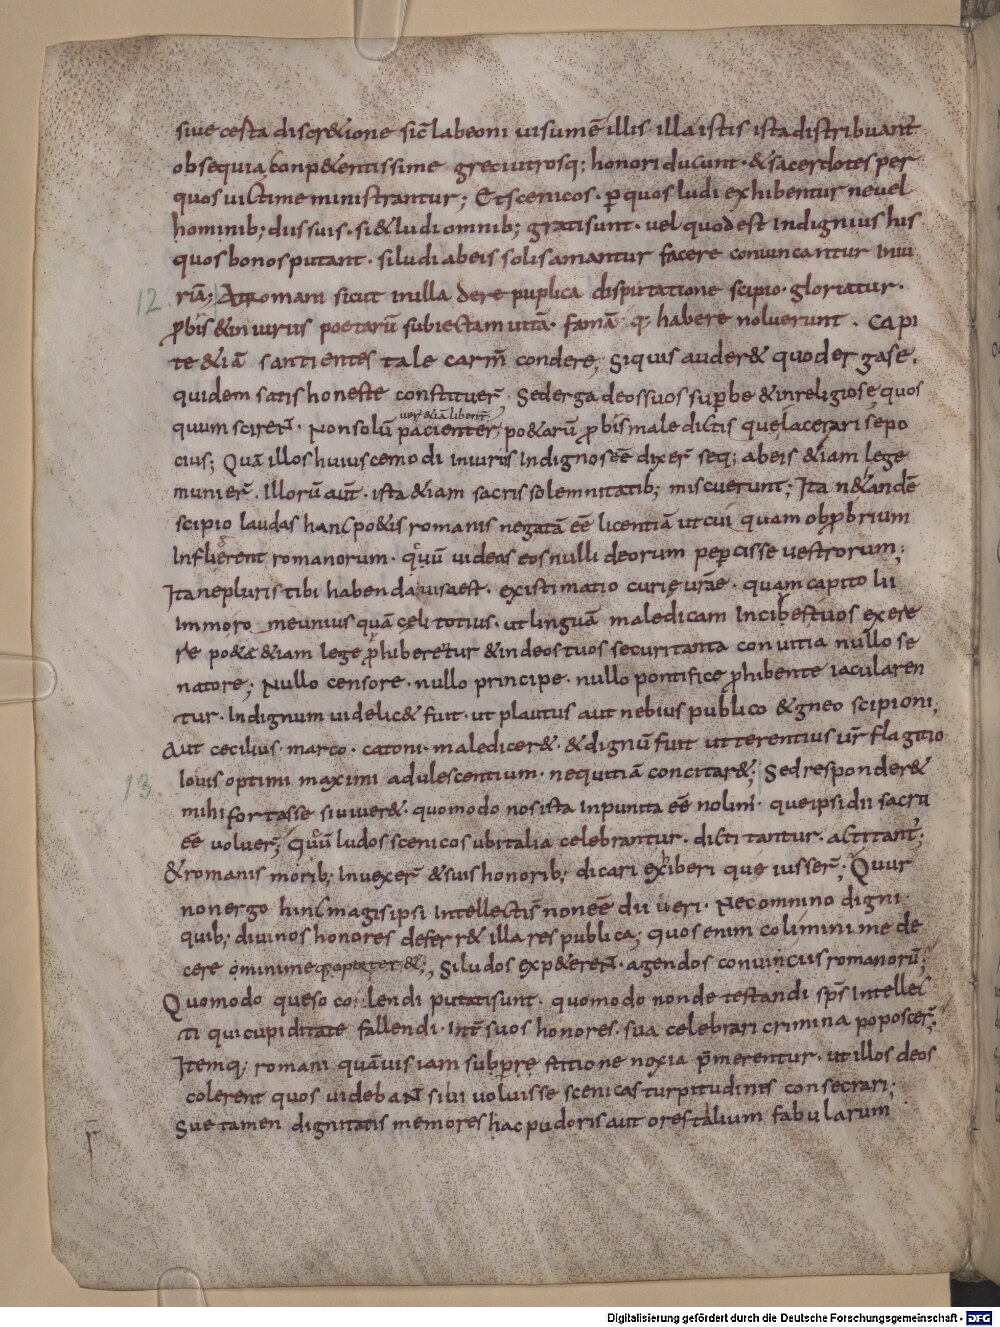 siue cesta discr&ione sic̄ labeoni uisum ē illis illa istis ista distribuant̄
obsequia conp&entissime greci utrosq; honori ducunt · & sacerdotes per
quos uictime ministrantur; Et scenicos · ꝑ quos ludi exhibentur ne uel
hominib; diis suis · si & ludi omnib; grati sunt · uel quod est indignius his
quos bonos putant · si ludi ab eis solis amantur facere conuincantur iniu
12 riā; At romani sicut in illa de re puplica disputatione scipio · gloriatur ·
ꝓbis & iniuriis poetarū subiectam uitā · famā q; habere noluerunt · Capi
te &iā santientes tale carm̄ condere; Siquis auder& quod erga se ·
quidem satis honeste constituer̄ · Sed erga deos suos superbe & inreligiose quos
uer̄ &iā libent̄
quum scirent̄ · Non solū pacienter po&arū ꝓbis maledictis que lacerari sepo
cius; Quā illos huiuscemodi iniuriis indignos eē dixer̄ seq; ab eis &iam lege
munier̄ · Illorū aūt · ista &iam sacris solemnitatib; miscuerunt; Ita n& andē
scipio laudas hanc po&is romanis negatā eē licentiā ut cui quam obꝓbrium
infligerent romanorum · quū uideas eos nulli deorum peꝑcisse uestrorum;
Itane pluris tibi habenda uisa est · existimatio curie urāe · quam capitolii
Immo rome unius quā celi totius · ut linguā maledicam in cibes tuos exere
re po&e &iam lege ꝓhiberetur & in deos tuos securi tanta conuitia nullo se
natore; Nullo censore · nullo principe · nullo pontifice ꝓhibente iacularen
tur · Indignum uidelic& fuit · ut plautus aut nebius publico & gneo scipioni;
Aut cecilius · marco · catoni · maledicer& · & dignū fuit ut terentius ur̄ flagitio
13. Iouis optimi maximi adulescentium · nequitiā concitar&; Sed responder&
mihi fortasse si uiuer& · quomodo nos ista inpunita eē nolim · que ipsi dii sacra
eē uoluer̄; Quū ludos scenicos ubi talia celebrantur · dictitantur · actitant̄;
& romanis morib; inuexer̄ & suis honorib; dicari exiberi que iusser̄; Quur
non ergo hinc magis ipsi intellectis̄ non eē dii ueri · Nec omnino digni
quib; diuinos honores deferr& illa res publica; quos enim coli minime de
cere ominime &; Si ludos exp&erent̄ · agendos conuiciis romanorū;
Quomodo queso colendi putati sunt · quomodo non detestandi sp̄s intellec
ti qui cupiditate fallendi · int̄ suos honores · sua celebrari crimina poposcer̄;
Itemq; romani quāuis iam subpre stitione noxia p̄merentur · ut illos deos
colerent quos uidebant̄ sibi uoluisse scenicas turpitudinis consecrari;
Sue tamen dignitatis memores hac pudoris aut orestalium fabularum
r̄
Digitalisierung gefördert durch die Deutsche Forschungsgemeinschaft - DFG